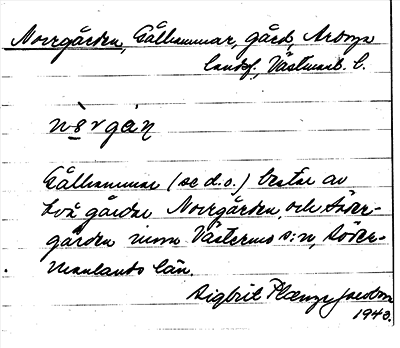 Norrgården, Gålhammar, gård, Arboga
landsf., Västmanl. l.
Gålhammar (se d.o.) består av
två gårdar Norrgården och Söder-
gården inom Västermo s:n, Söder-
manlands län.
Sigbrit Plænge Jacobson
1940.